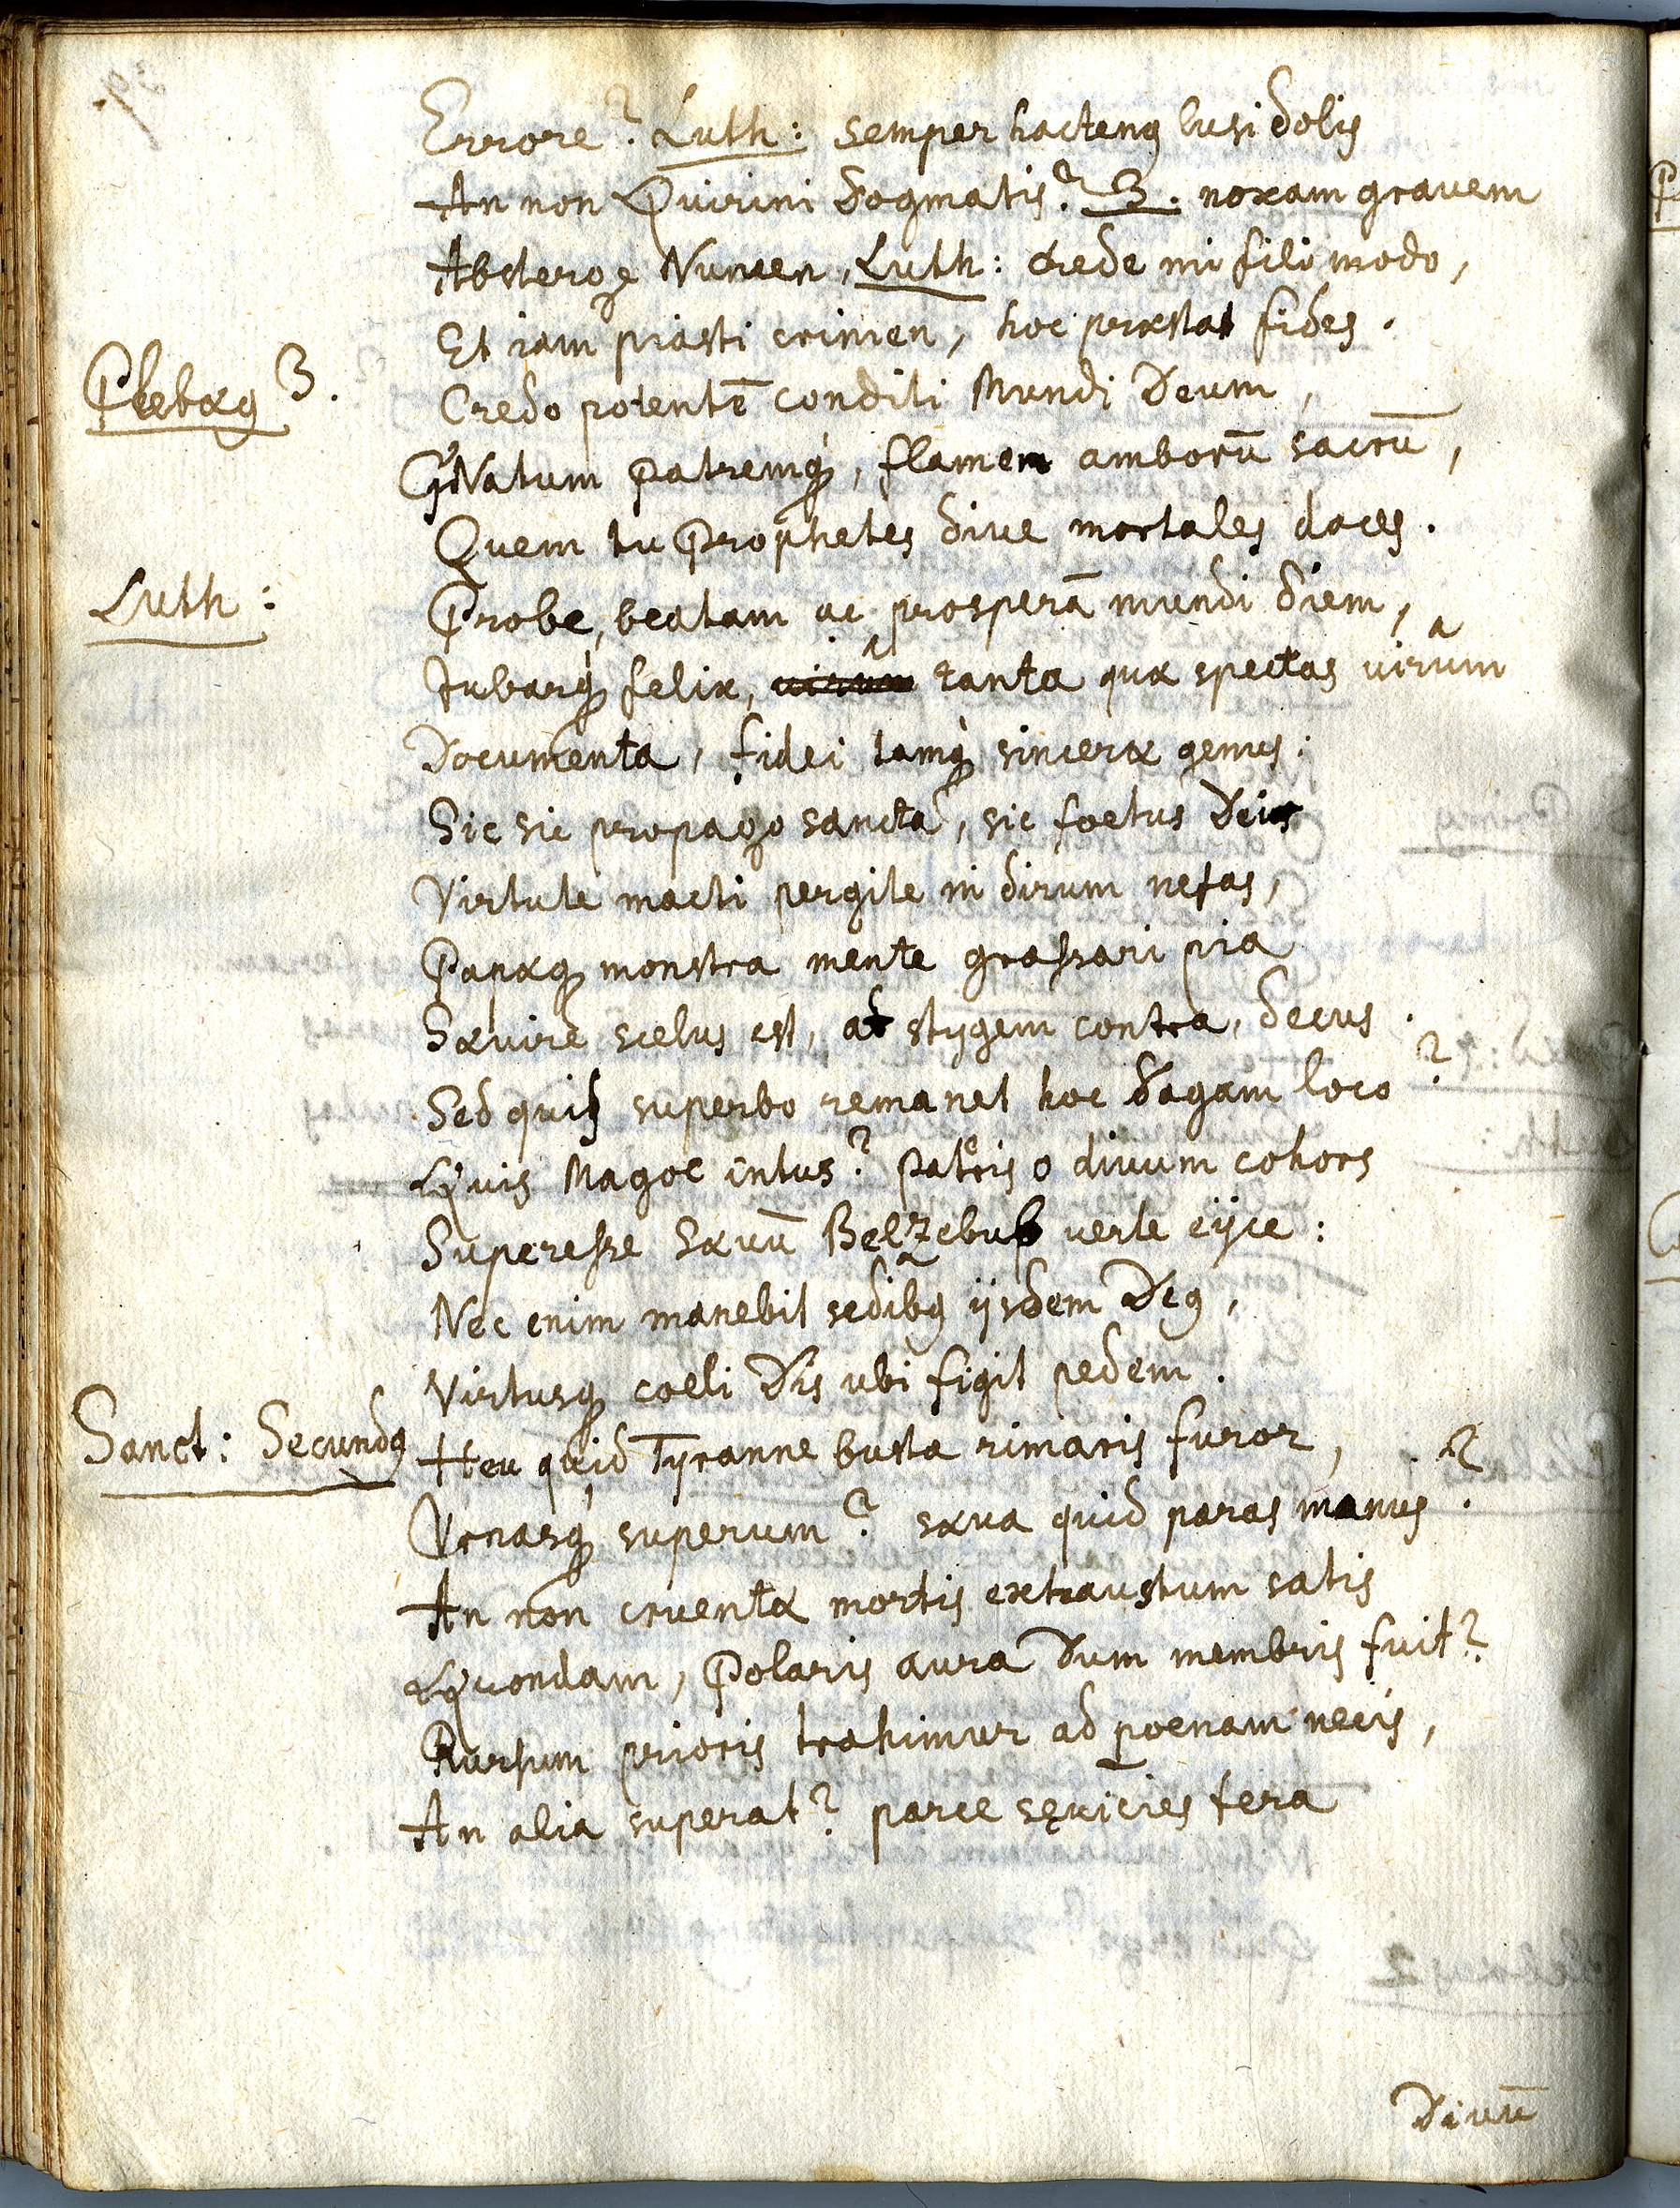 Errore? Luth: semper hactenꝰ lusi dolis
An non Quirini dogmatis? 3. noxam gravem
Absterge Numen, Luth: crede mi fili modo,
Et iam piasti crimen, hoc præstat fides.
Plebæꝰ 3. Credo potentē conditi Mundi Deum,
GNatum Patremq́, flamen amborū sacrū,
Quem tu Prophetes dive mortales doces.
Luth: Probe, beatam ac prosperā mundi diem,
Iubarq́ felix, tanta quæ spectas virûm
Documenta, fidei tamq́ sinceræ genus:
Sic sic propago sancta, sic foetus Dei
Virtute macti pergite in dirum nefas,
Papæq monstra mente grassari pia
Sævire scelus est, at stygem contra, decus.
Sed quis superbo remanet hoc dagam loco?
Quis Magoc intus? Pateris o divum cohors
Superesse sævū Belzebub verte eijce:
Nec enim manebit sedibꝰ ijsdem Deꝰ,
Virtusq coeli Dis ubi figit pedem.
Sanct: Secundꝰ Heu quid Tyranne busta rimaris furor,
Vrnasq superum? sæva quid paras manus?
An non cruentæ mortis exhaustum satis
Quondam, Polaris aura dum membris fuit?
Rursum prioris trahimur ad poenam necis,
An alia superat? parce sęvicies fera
Divū